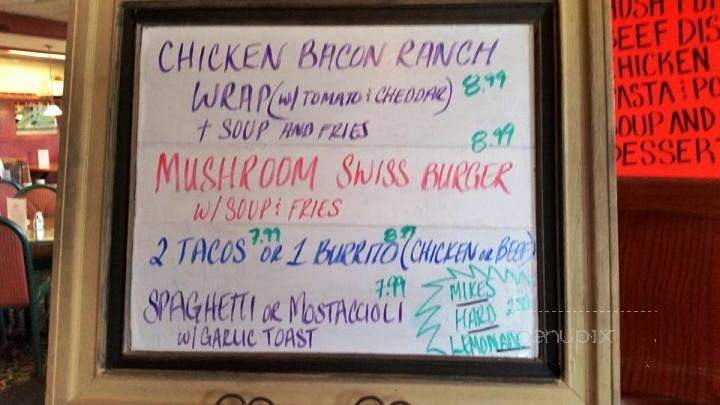 CHICKEN BACON RANCH
WRAP (W/ TOMATO & CHEDDAR) 8.99
+ SOUP AND FRIES
8.99
MUSHROOM SWISS BURGER
W/ SOUP & FRIES
2 TACOS 7.99 OR 1 BURRITO 8.99 (CHICKEN OR BEEF)
7.99
SPAGHETTI OR MOSTACCIOLI
W/ GARLIC TOAST
MIKES
HARD 2.50
LEMONADE
EEF DIS
HICKEN
ASTA & PO
OUP AND
ESSERT
menupix